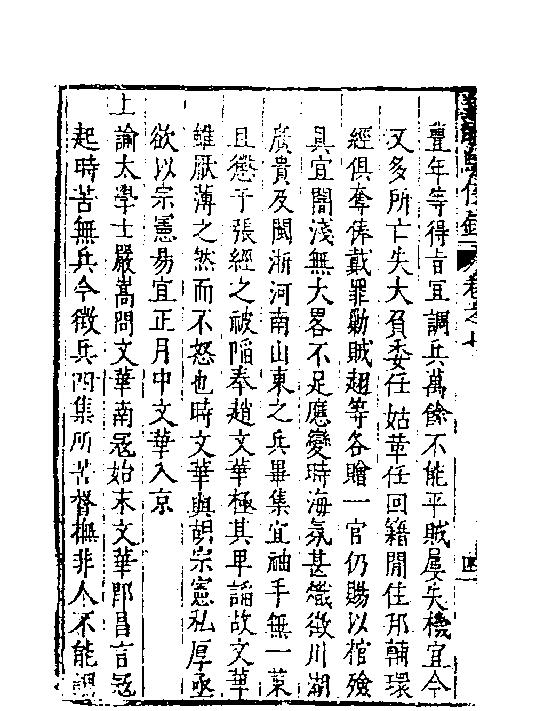 皇明馭倭錄 卷之七 四
豐年等得旨宜調兵萬餘不能平賊屢失機宜今
又多所亡失大負委任姑革任回籍閒住邢輔環
經俱奪俸戴罪勦賊超等各贈一官仍賜以棺殮
具宜闇淺無大畧不足應變時海氛甚熾徵川湖
廣貴及閩浙河南山東之兵畢集宜袖手無一策
且懲于張經之被陷奉趙文華極其卑諂故文華
雖厭薄之然而不怒也時文華與胡宗憲私厚亟
欲以宗憲易宜正月中文華入京
上諭大學士嚴嵩問文華南冦始末文華即昌言冦
起時苦無兵今徵兵四集所苦督撫非人不能調